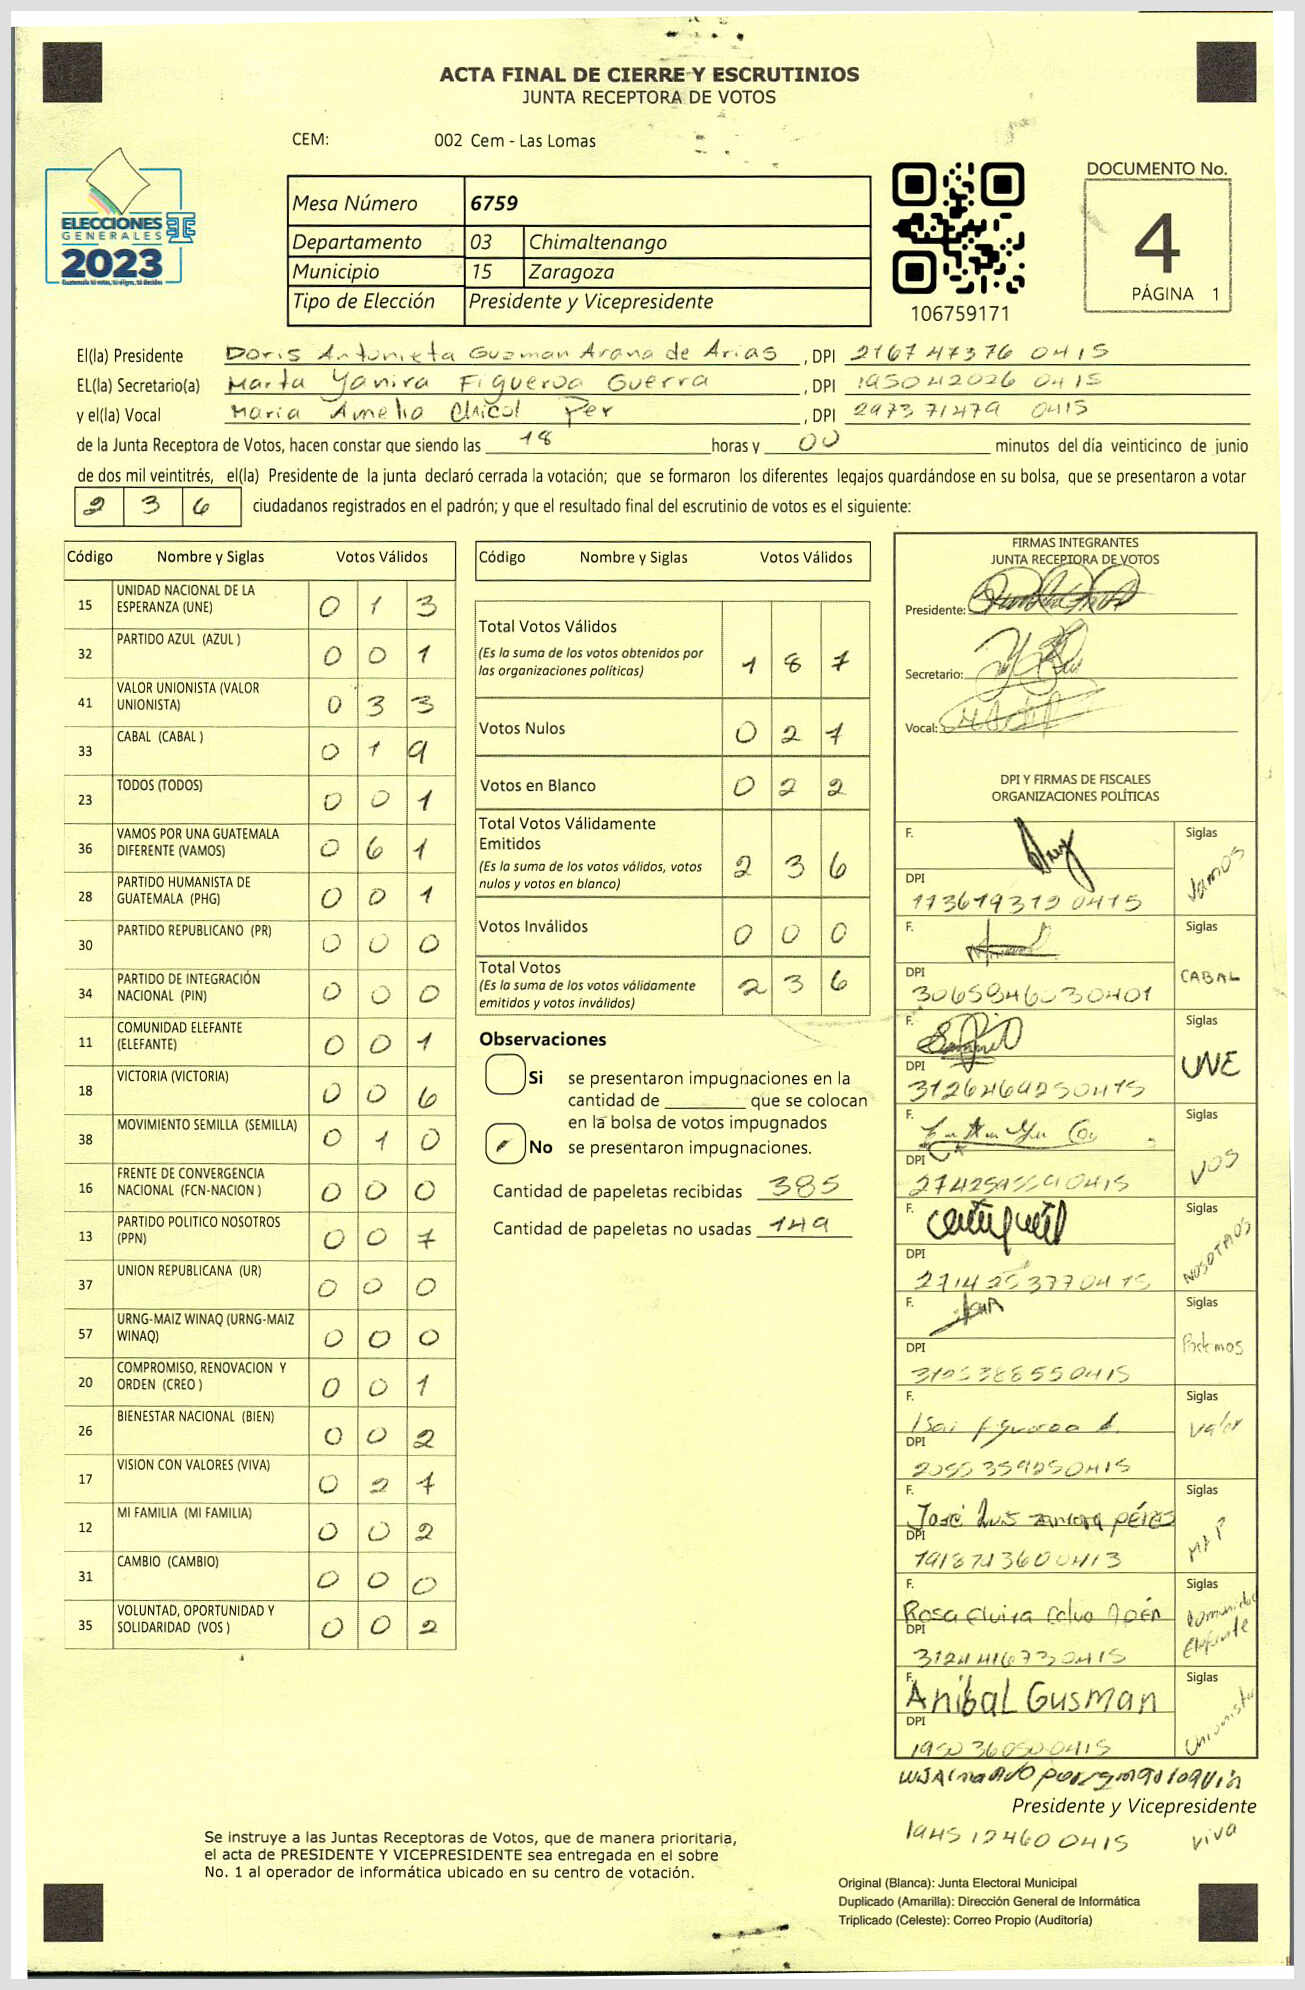 ACTA FINAL DE CIERRE Y ESCRUTINIOS
JUNTA RECEPTORA DE VOTOS
CEM: 002 Cem - Las Lomas
ELECCIONES
GENERALES
2023
Mesa Número 6759
Departamento 03 Chimaltenango
Municipio 15 Zaragoza
Tipo de Elección Presidente y Vicepresidente
106759171
DOCUMENTO No.
4
PÁGINA 1
El(la) Presidente Doris Antonieta Guzman Arana de Arias , DPI 2167 47376 0415
EL(la) Secretario(a) Marta Yanira Figueroa Guerra , DPI 1950 42026 0415
y el(la) Vocal Maria Amelia Chicol Per , DPI 2973 71479 0415
de la Junta Receptora de Votos, hacen constar que siendo las 18 horas y 00 minutos del día veinticinco de junio
de dos mil veintitrés, el(la) Presidente de la junta declaró cerrada la votación; que se formaron los diferentes legajos guardándose en su bolsa, que se presentaron a votar
2 3 6 ciudadanos registrados en el padrón; y que el resultado final del escrutinio de votos es el siguiente:
Código Nombre y Siglas Votos Válidos
15 UNIDAD NACIONAL DE LA ESPERANZA (UNE) 0 1 3
32 PARTIDO AZUL (AZUL ) 0 0 1
41 VALOR UNIONISTA (VALOR UNIONISTA) 0 3 3
33 CABAL (CABAL ) 0 1 9
23 TODOS (TODOS) 0 0 1
36 VAMOS POR UNA GUATEMALA DIFERENTE (VAMOS) 0 6 1
28 PARTIDO HUMANISTA DE GUATEMALA (PHG) 0 0 1
30 PARTIDO REPUBLICANO (PR) 0 0 0
34 PARTIDO DE INTEGRACIÓN NACIONAL (PIN) 0 0 0
11 COMUNIDAD ELEFANTE (ELEFANTE) 0 0 1
18 VICTORIA (VICTORIA) 0 0 6
38 MOVIMIENTO SEMILLA (SEMILLA) 0 1 0
16 FRENTE DE CONVERGENCIA NACIONAL (FCN-NACION ) 0 0 0
13 PARTIDO POLITICO NOSOTROS (PPN) 0 0 7
37 UNION REPUBLICANA (UR) 0 0 0
57 URNG-MAIZ WINAQ (URNG-MAIZ WINAQ) 0 0 0
20 COMPROMISO, RENOVACION Y ORDEN (CREO ) 0 0 1
26 BIENESTAR NACIONAL (BIEN) 0 0 2
17 VISION CON VALORES (VIVA) 0 2 7
12 MI FAMILIA (MI FAMILIA) 0 0 2
31 CAMBIO (CAMBIO) 0 0 0
35 VOLUNTAD, OPORTUNIDAD Y SOLIDARIDAD (VOS ) 0 0 2
Código Nombre y Siglas Votos Válidos
Total Votos Válidos 1 8 7
(Es la suma de los votos obtenidos por
las organizaciones políticas)
Votos Nulos 0 2 7
Votos en Blanco 0 2 2
Total Votos Válidamente
Emitidos 2 3 6
(Es la suma de los votos válidos, votos
nulos y votos en blanco)
Votos Inválidos 0 0 0
Total Votos 2 3 6
(Es la suma de los votos válidamente
emitidos y votos inválidos)
Observaciones
Si se presentaron impugnaciones en la
cantidad de ________ que se colocan
en la bolsa de votos impugnados
No se presentaron impugnaciones.
Cantidad de papeletas recibidas 385
Cantidad de papeletas no usadas 149
FIRMAS INTEGRANTES
JUNTA RECEPTORA DE VOTOS
Presidente:
Secretario:
Vocal:
DPI Y FIRMAS DE FISCALES
ORGANIZACIONES POLÍTICAS
F. Siglas
DPI Vamos
F. Siglas
DPI CABAL
3065946030401
F. Siglas
DPI UNE
3126469250415
F. Siglas
DPI VOS
F. Siglas
DPI NOSOTROS
F. Siglas
DPI Podemos
F. Siglas
DPI Valor
F. José Luis Pérez Siglas
DPI
F. Rosa Elvira Calvo Siglas
DPI Comunidad Elefante
3124416730415
F. Anibal Gusman Siglas
DPI Unionista
Presidente y Vicepresidente
1945 12460 0415 viva
Se instruye a las Juntas Receptoras de Votos, que de manera prioritaria,
el acta de PRESIDENTE Y VICEPRESIDENTE sea entregada en el sobre
No. 1 al operador de informática ubicado en su centro de votación.
Original (Blanca): Junta Electoral Municipal
Duplicado (Amarilla): Dirección General de Informática
Triplicado (Celeste): Correo Propio (Auditoría)